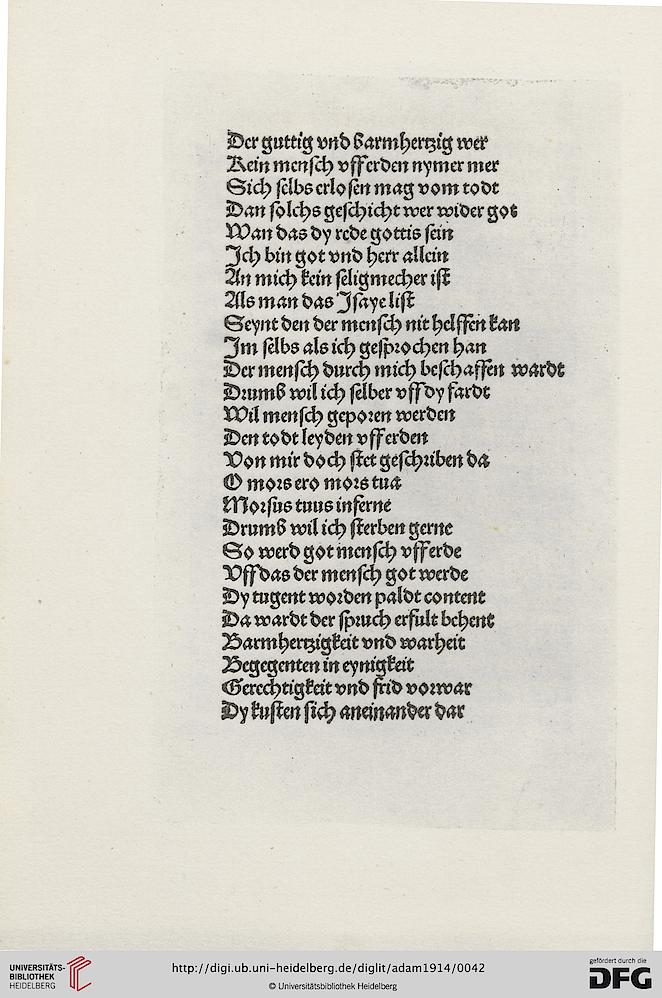 Der guttig vnd barmhertzig wer
Kein mensch vff erden nymer mer
Sich selbs erlosen mag vom todt
Dan solchs geschicht wer wider got
Wan das dy rede gottis sein
Ich bin got vnd herr allein
An mich kein seligmecher ist
Als man das Jsaye list
Seynt den der mensch nit helffen kan
Jm selbs als ich gesprochen han
Der mensch durch mich beschaffen wardt
Drumb wil ich selber vff dy fardt
Wil mensch geporen werden
Den todt leyden vff erden
Von mir doch stet geschriben da
O mors ero mors tua
Morsus tuus inferne
Drumb wil ich sterben gerne
So werd got mensch vff erde
Vff das der mensch got werde
Dy tugent worden paldt content
Da wardt der spruch erfult behent
Barmhertzigkeit vnd warheit
Begegenten in eynigkeit
Gerechtigkeit vnd frid vorwar
Dy kusten sich aneinander dar
UNIVERSITÄTS-
BIBLIOTHEK
HEIDELBERG
http://digi.ub.uni-heidelberg.de/diglit/adam1914/0042
© Universitätsbibliothek Heidelberg
gefördert durch die
DFG